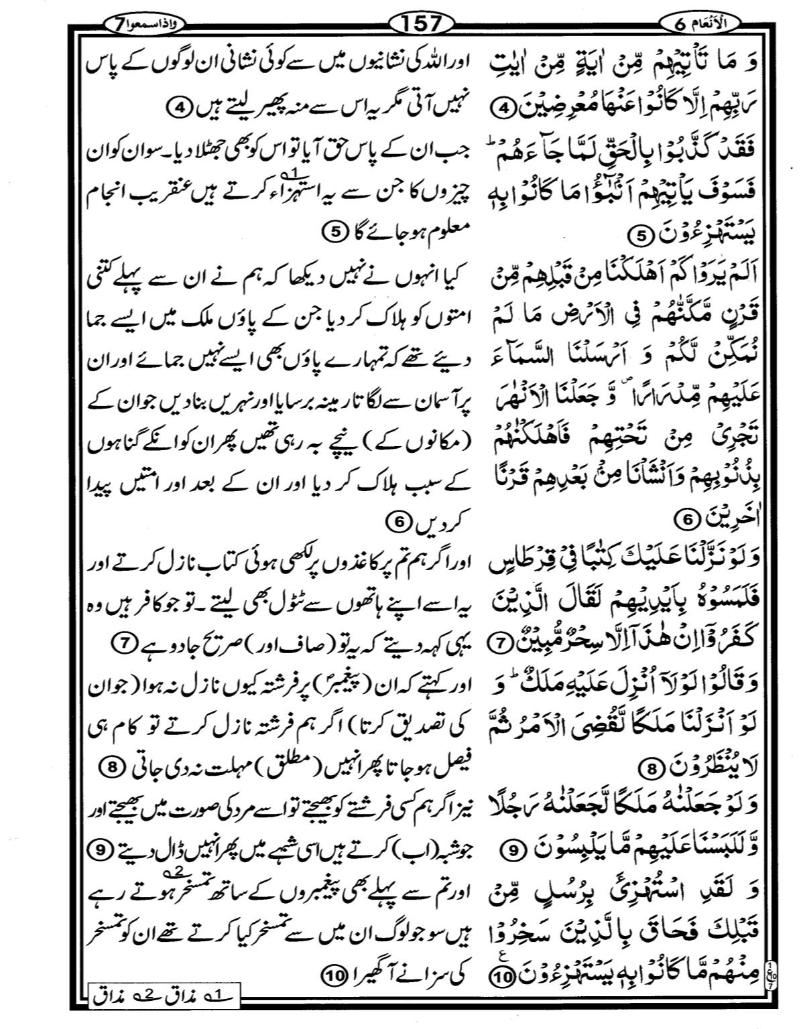 الْاَنْعَام 6
157
واذاسمعوا 7
وَ مَا تَاْتِیْهِمْ مِّنْ اٰیَةٍ مِّنْ اٰیٰتِ
رَبِّهِمْ اِلَّا كَانُوْا عَنْهَا مُعْرِضِیْنَ ④
فَقَدْ كَذَّبُوْا بِالْحَقِّ لَمَّا جَآءَهُمْ ؕ
فَسَوْفَ یَاْتِیْهِمْ اَنْۢبٰٓؤُا مَا كَانُوْا بِهٖ
یَسْتَهْزِءُوْنَ ⑤
اَلَمْ یَرَوْا كَمْ اَهْلَكْنَا مِنْ قَبْلِهِمْ مِّنْ
قَرْنٍ مَّكَّنّٰهُمْ فِی الْاَرْضِ مَا لَمْ
نُمَكِّنْ لَّكُمْ وَ اَرْسَلْنَا السَّمَآءَ
عَلَیْهِمْ مِّدْرَارًا ۪ وَّ جَعَلْنَا الْاَنْهٰرَ
تَجْرِیْ مِنْ تَحْتِهِمْ فَاَهْلَكْنٰهُمْ
بِذُنُوْبِهِمْ وَاَنْشَاْنَا مِنْۢ بَعْدِهِمْ قَرْنًا
اٰخَرِیْنَ ⑥
وَ لَوْ نَزَّلْنَا عَلَیْكَ كِتٰبًا فِیْ قِرْطَاسٍ
فَلَمَسُوْهُ بِاَیْدِیْهِمْ لَقَالَ الَّذِیْنَ
كَفَرُوْۤا اِنْ هٰذَاۤ اِلَّا سِحْرٌ مُّبِیْنٌ ⑦
وَ قَالُوْا لَوْلَاۤ اُنْزِلَ عَلَیْهِ مَلَكٌ ؕ وَ
لَوْ اَنْزَلْنَا مَلَكًا لَّقُضِیَ الْاَمْرُ ثُمَّ
لَا یُنْظَرُوْنَ ⑧
وَ لَوْ جَعَلْنٰهُ مَلَكًا لَّجَعَلْنٰهُ رَجُلًا
وَّ لَلَبَسْنَا عَلَیْهِمْ مَّا یَلْبِسُوْنَ ⑨
وَ لَقَدِ اسْتُهْزِئَ بِرُسُلٍ مِّنْ
قَبْلِكَ فَحَاقَ بِالَّذِیْنَ سَخِرُوْا
مِنْهُمْ مَّا كَانُوْا بِهٖ یَسْتَهْزِءُوْنَ ⑩
اور اللہ کی نشانیوں میں سے کوئی نشانی ان لوگوں کے پاس
نہیں آتی مگر یہ اس سے منہ پھیر لیتے ہیں ④
جب ان کے پاس حق آیا تو اس کو بھی جھٹلا دیا۔ سو ان کو ان
چیزوں کا جن سے یہ استہزاء1 کرتے ہیں عنقریب انجام
معلوم ہو جائے گا ⑤
کیا انہوں نے نہیں دیکھا کہ ہم نے ان سے پہلے کتنی
امتوں کو ہلاک کر دیا جن کے پاؤں ملک میں ایسے جما
دیئے تھے کہ تمہارے پاؤں بھی ایسے نہیں جمائے اور ان
پر آسمان سے لگاتار مینہ برسایا اور نہریں بنا دیں جو ان کے
(مکانوں کے) نیچے بہ رہی تھیں پھر ان کو انکے گناہوں
کے سبب ہلاک کر دیا اور ان کے بعد اور امتیں پیدا
کر دیں ⑥
اور اگر ہم تم پر کاغذوں پر لکھی ہوئی کتاب نازل کرتے اور
یہ اسے اپنے ہاتھوں سے ٹٹول بھی لیتے ۔ تو جو کافر ہیں وہ
یہی کہہ دیتے کہ یہ تو (صاف اور) صریح جادو ہے ⑦
اور کہتے کہ ان (پیغمبرؐ) پر فرشتہ کیوں نازل نہ ہوا (جو ان
کی تصدیق کرتا) اگر ہم فرشتہ نازل کرتے تو کام ہی
فیصل ہو جاتا پھر انہیں (مطلق) مہلت نہ دی جاتی ⑧
نیز اگر ہم کسی فرشتے کو بھیجتے تو اسے مرد کی صورت میں بھیجتے اور
جو شبہ (اب) کرتے ہیں اسی شبھے میں پھر انہیں ڈال دیتے ⑨
اور تم سے پہلے بھی پیغمبروں کے ساتھ تمسخر2 ہوتے رہے
ہیں سو جو لوگ ان میں سے تمسخر کیا کرتے تھے ان کو تمسخر
کی سزا نے آ گھیرا ⑩
1 مذاق 2 مذاق